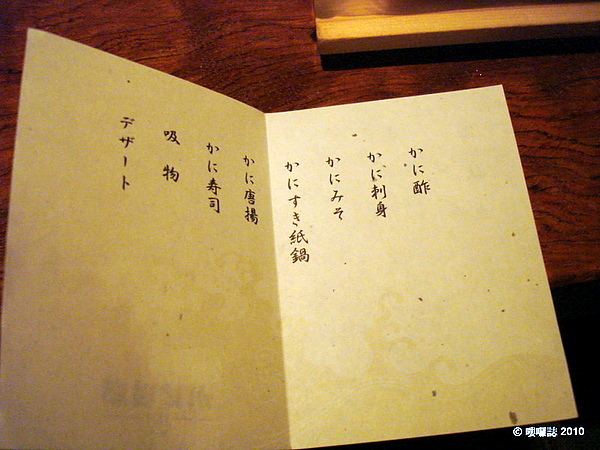 かに酢
かに刺身
かにみそ
かにすき紙鍋
かに唐揚
かに寿司
吸物
デザート
© 嗅囉誌 2010